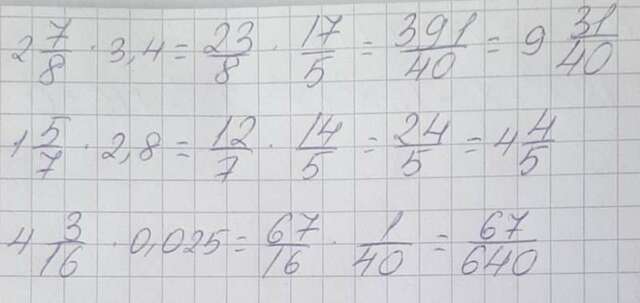 2 7/8 · 3,4 = 23/8 · 17/5 = 391/40 = 9 31/40
1 5/7 · 2,8 = 12/7 · 14/5 = 24/5 = 4 4/5
4 3/16 · 0,025 = 67/16 · 1/40 = 67/640